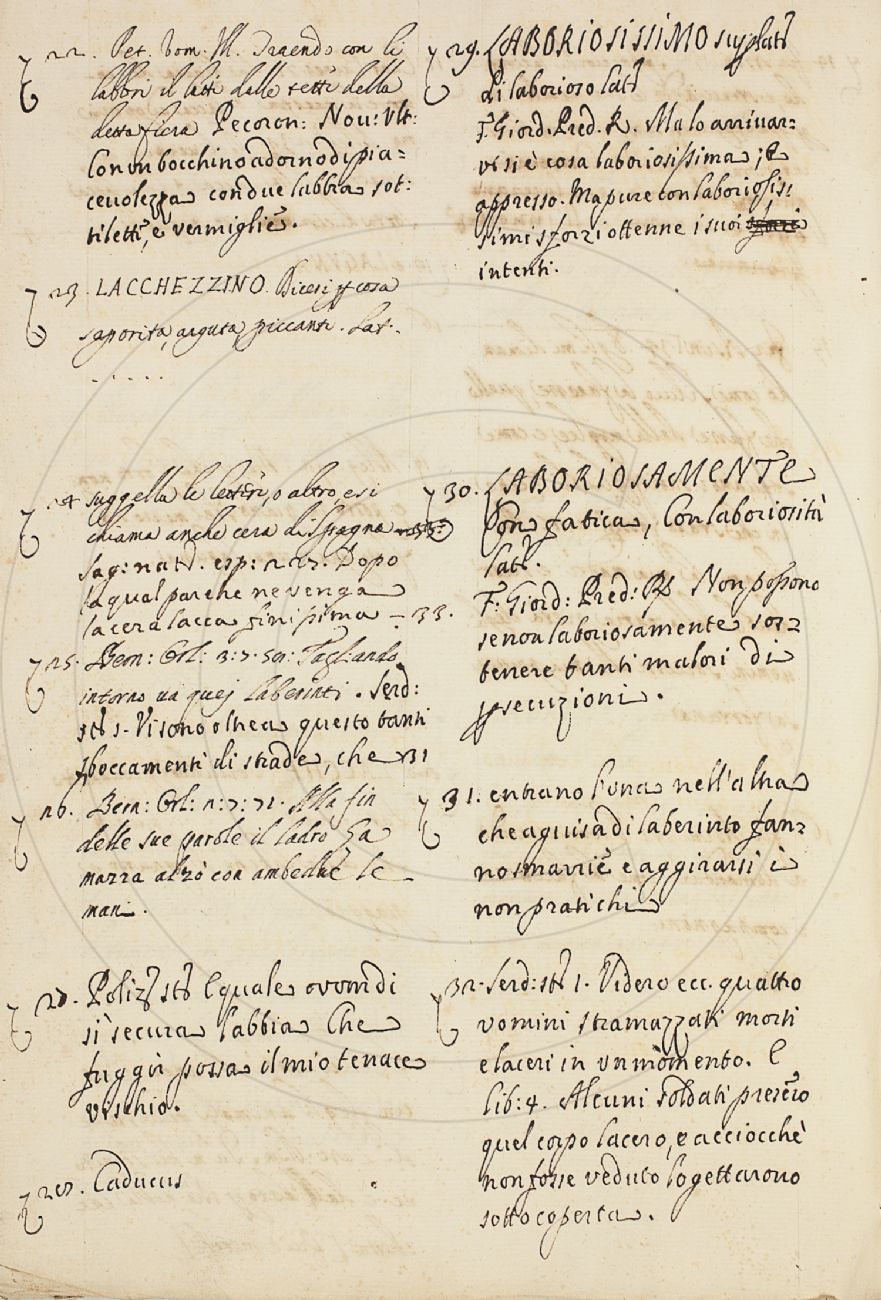 22. Pet. vom. Ill. Traendo con le
labbri il latte dalle tette della
detta fiera Pecoron: Nov: Ult:
Con un bocchino adorno di pia=
cevolezza con due labbra sot:
tilette, e vermiglie.
23. LACCHEZZINO. Dicesi p cosa
saporita, arguta, piccante. Lat.
. . . . .
24 suggella le lettere, o altro, e si
chiama anche cera di Spagna
Sag: nat. esp: 227. Dopo
la qual pare che ne venga
la cera lacca finissima – 33.
25. Bern: Orl: 3:7.50: Tagliando
intorno va quej laberinti. Serd:
st. 1. Vi sono oltrea questo tanti
sboccamenti di strade, che 31
26. Bern: Orl: 2:7:71. Alla fin
delle sue parole il ladro La
mazza alzò con ambedue le
man.
27. Poliz st. E quale ovom di
si secura labbia Che
fuggir possa il mio tenace
vischio.
28. Caducus
29. LABORIOSISSIMO suplat
di laborioso lat
F. Giord. Pred. R. Ma lo arrivar=
vi si è cosa laboriosissima; E
appresso. Ma pure con laboriosis:
simi sforzi ottenne i suoi
intenti.
30. LABORIOSAMENTE
Con fatica, Con laboriosità
Lat.
F: Giord: Pred: R Non possono
se non laboriosamente sos=
tenere tanti malori di
psecuzioni.
31. entrano l'una nell'altra
che a guisa di laberinto fan=
no smarrire e aggirarsi i
non pratichi
32. Serd: st. 1. Videro ecc. quattro
vomini stramazzati morti
e laceri in un momento. E
lib: 4. Alcuni soldati presero
quel corpo lacero, e acciocchè
non fosse veduto lo gettarono
sotto coperta.